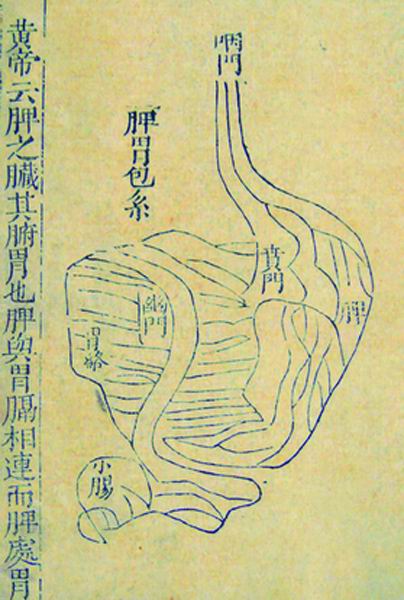 咽門
脾胃包系
賁門
脾
幽門
小腸
黄帝云脾之臟其腑胃也脾與胃膈相連而脾處胃